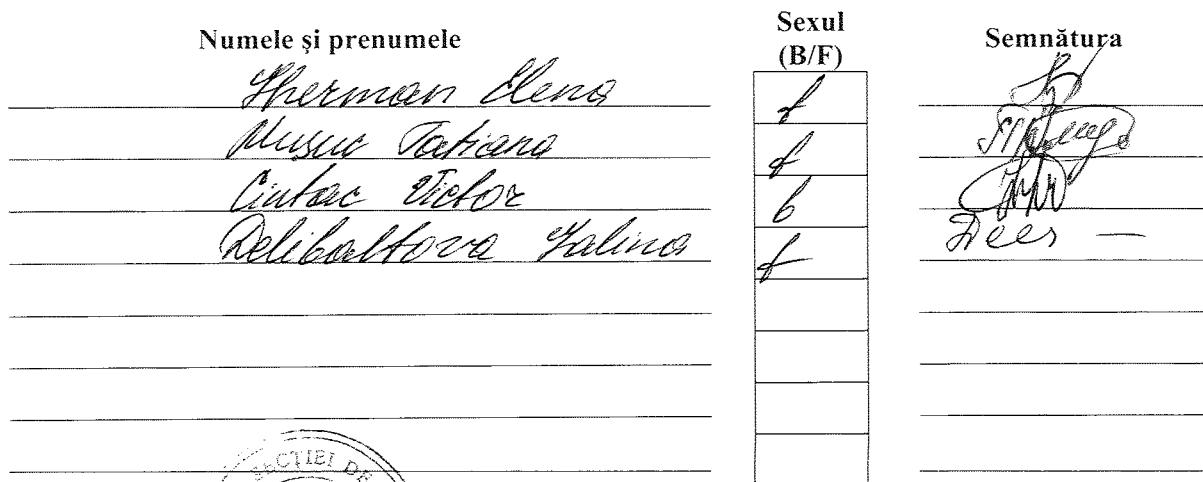 Numele şi prenumele Sexul (B/F) Semnătura
Gherman Elena f
Muşuc Tatiana f
Ciutac Victor b
Delibaltova Galina f
SECŢIEI DE